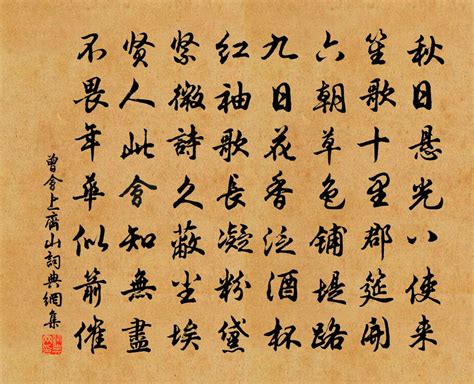 秋日悬光八使来
笙歌十里郡筵開
六朝草色铺堤路
九日花香泛酒杯
红袖歌長凝粉黛
紫微詩久蔽尘埃
贤人此會知無盡
不畏年華似箭催
曾會上齊山詞典網集